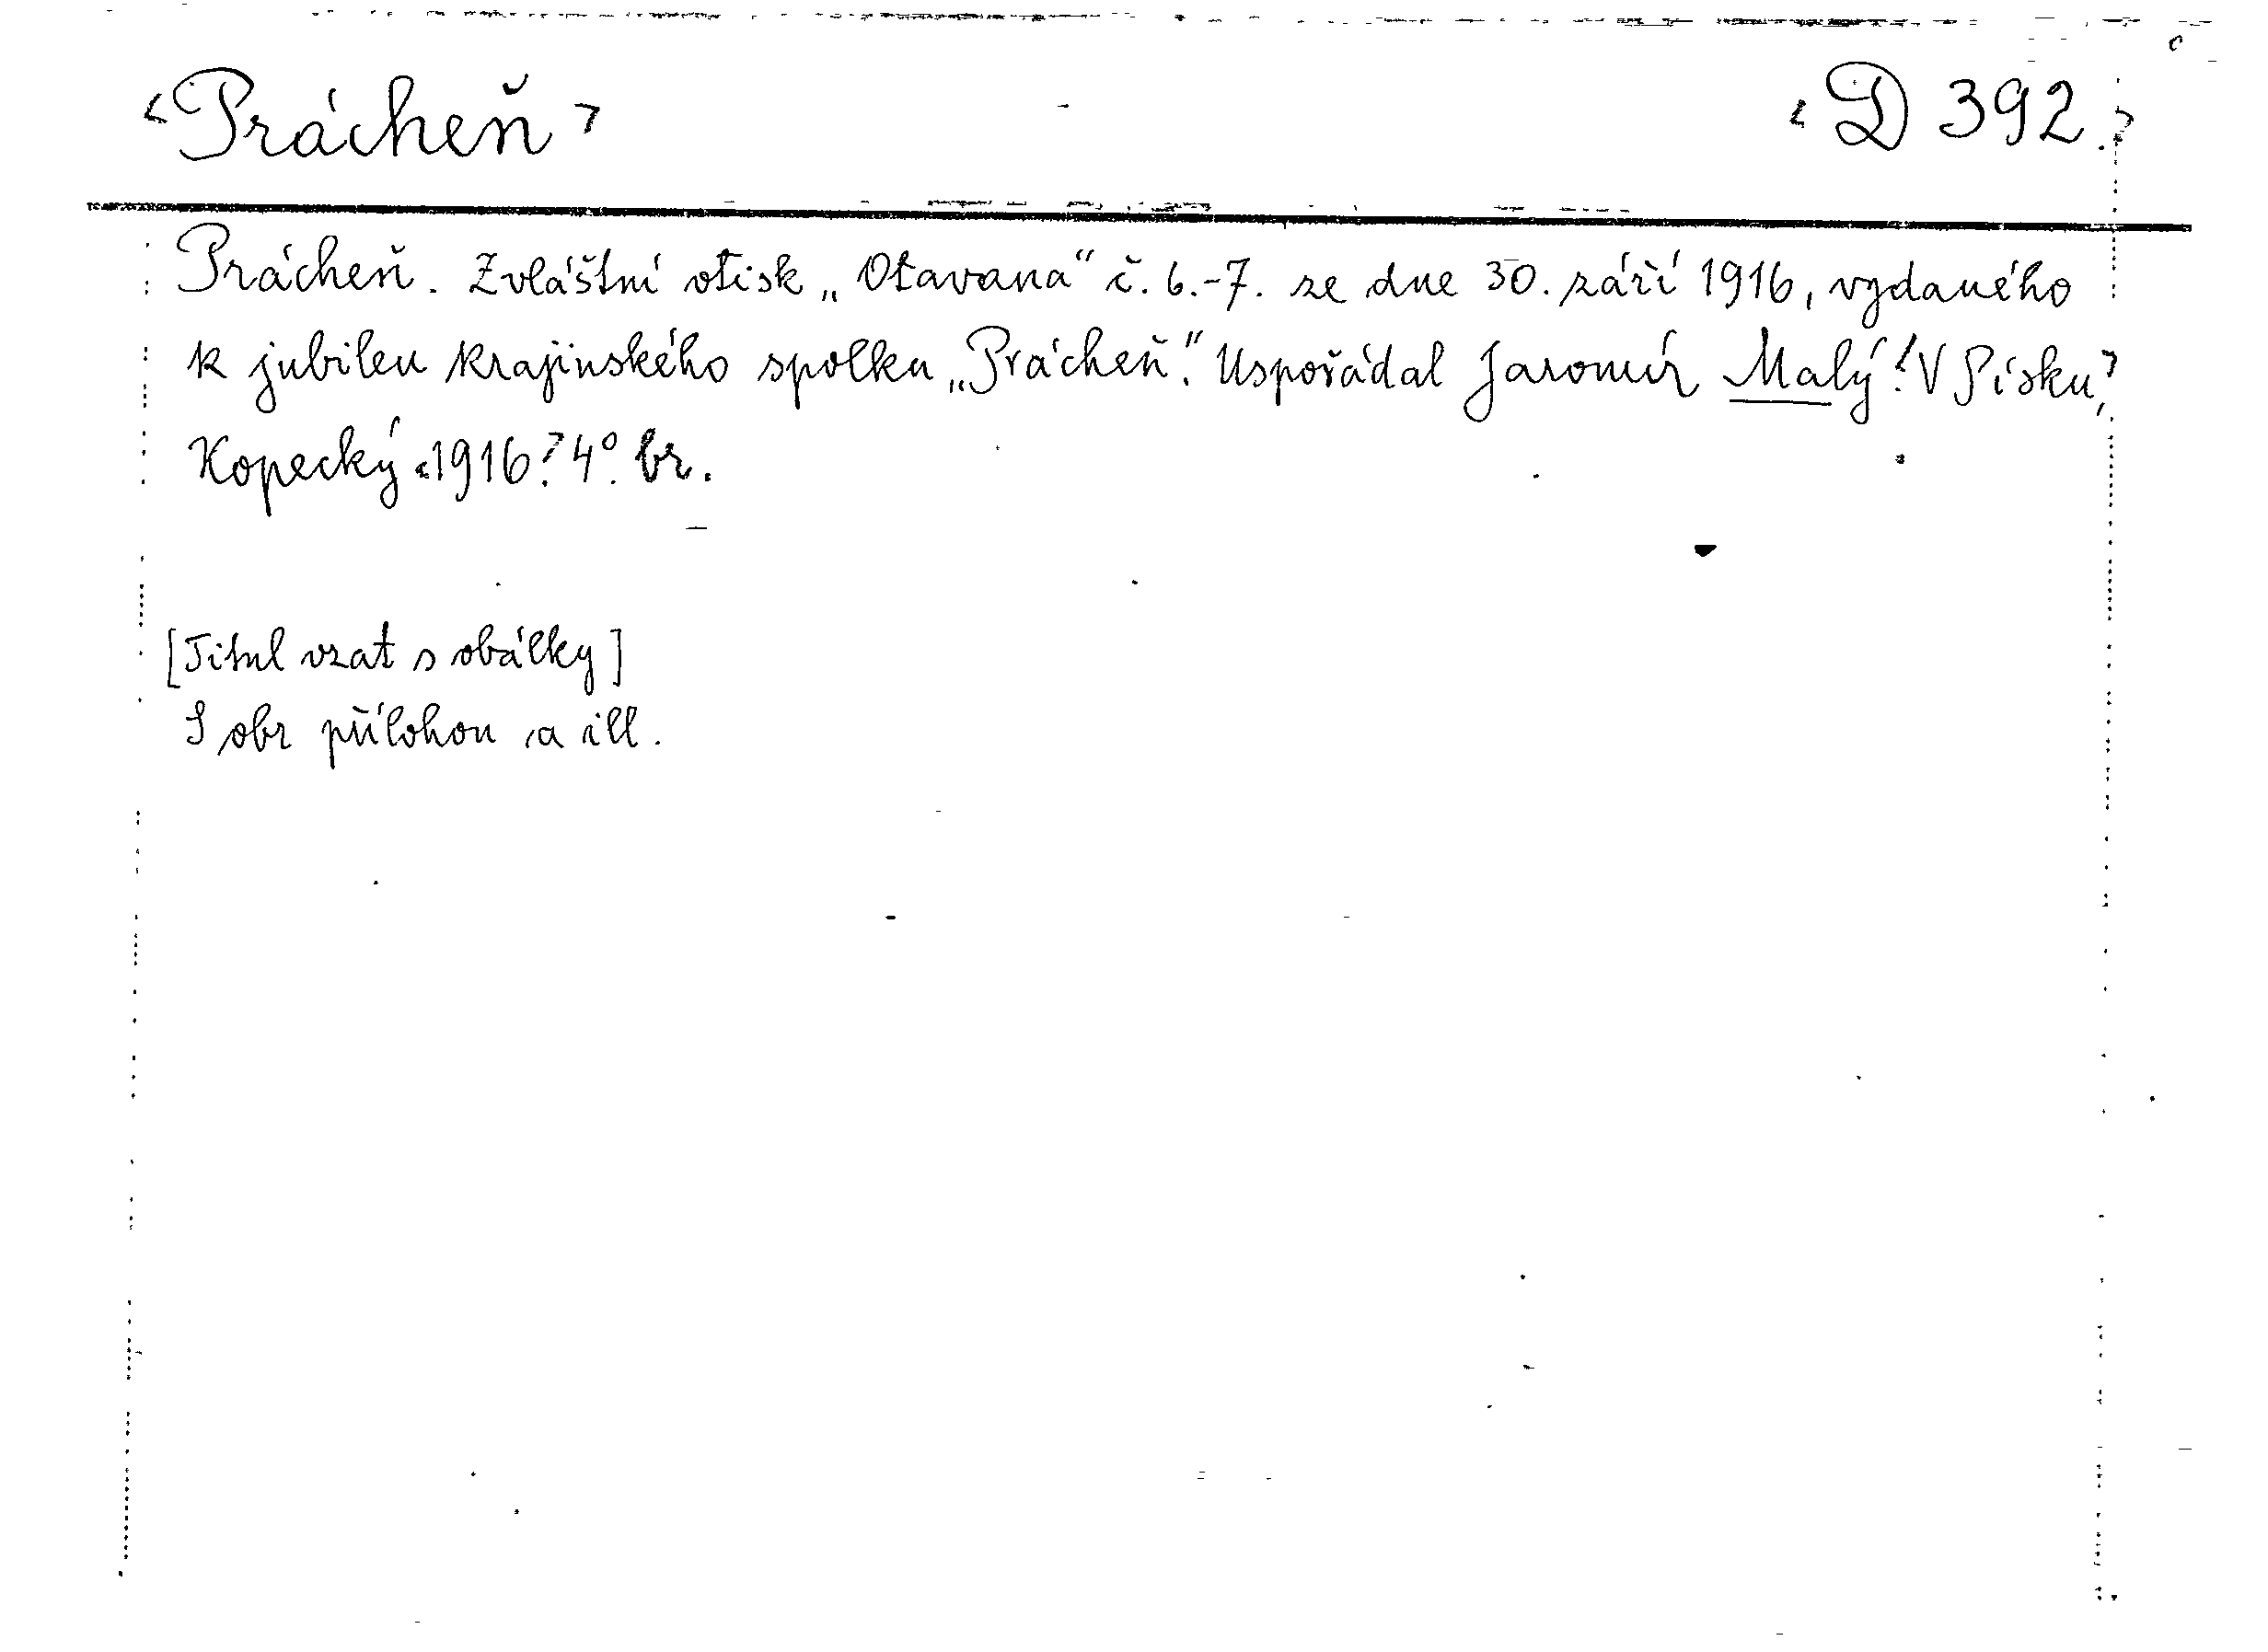 <Prácheň> <D 392.>
Prácheň. Zvláštní otisk „Otavana“ č. 6.-7. ze dne 30. září 1916, vydaného
k jubileu krajinského spolku „Prácheň“. Uspořádal Jaromír Malý. <V Písku,>
Kopecký <1916>. 4°. br.
[Titul vzat s obálky]
S obr přílohou a ill.